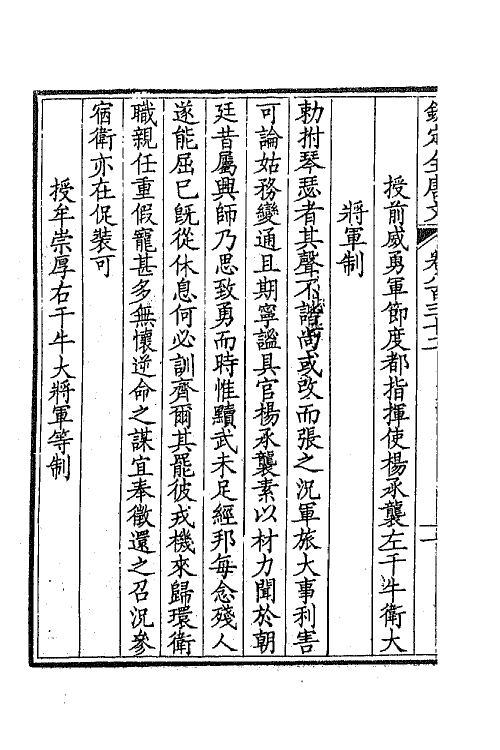 欽定全唐文　卷八百三十二　　一
授前威勇軍節度都指揮使楊承襲左千牛衛大
將軍制
勅拊琴瑟者其聲不諧尚或改而張之況軍旅大事利害
可論姑務變通且期寧謐具官楊承襲素以材力聞於朝
廷昔屬興師乃思致勇而時惟黷武未足經邦每念殘人
遂能屈已旣從休息何必訓齊爾其罷彼戎機來歸環衛
職親任重假寵甚多無懷逆命之謀宜奉徵還之召況參
宿衛亦在促裝可
授牟崇厚右千牛大將軍等制